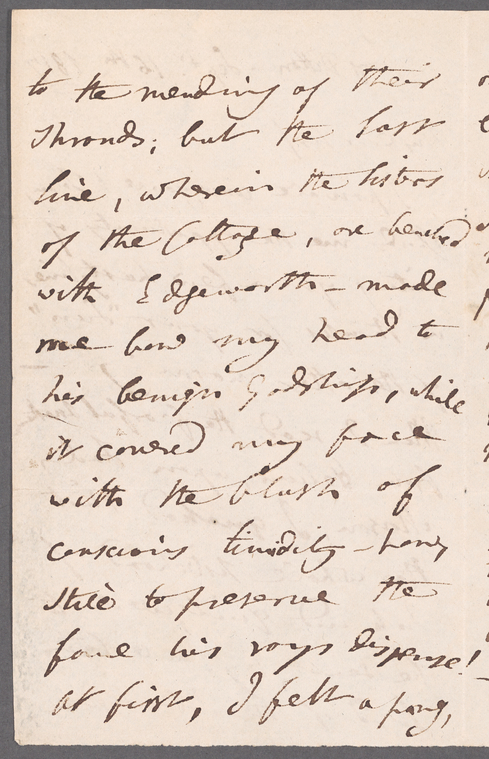 to the mending of their
shrouds; but the last
line, wherein the sisters
of the Cottage, are benched
with Edgeworth – made
me bow my head to
his benign Godship, while
it covered my face
with the blush of
conscious timidity – how
to preserve the
fame his rays dispense!
at first, I felt a pang,